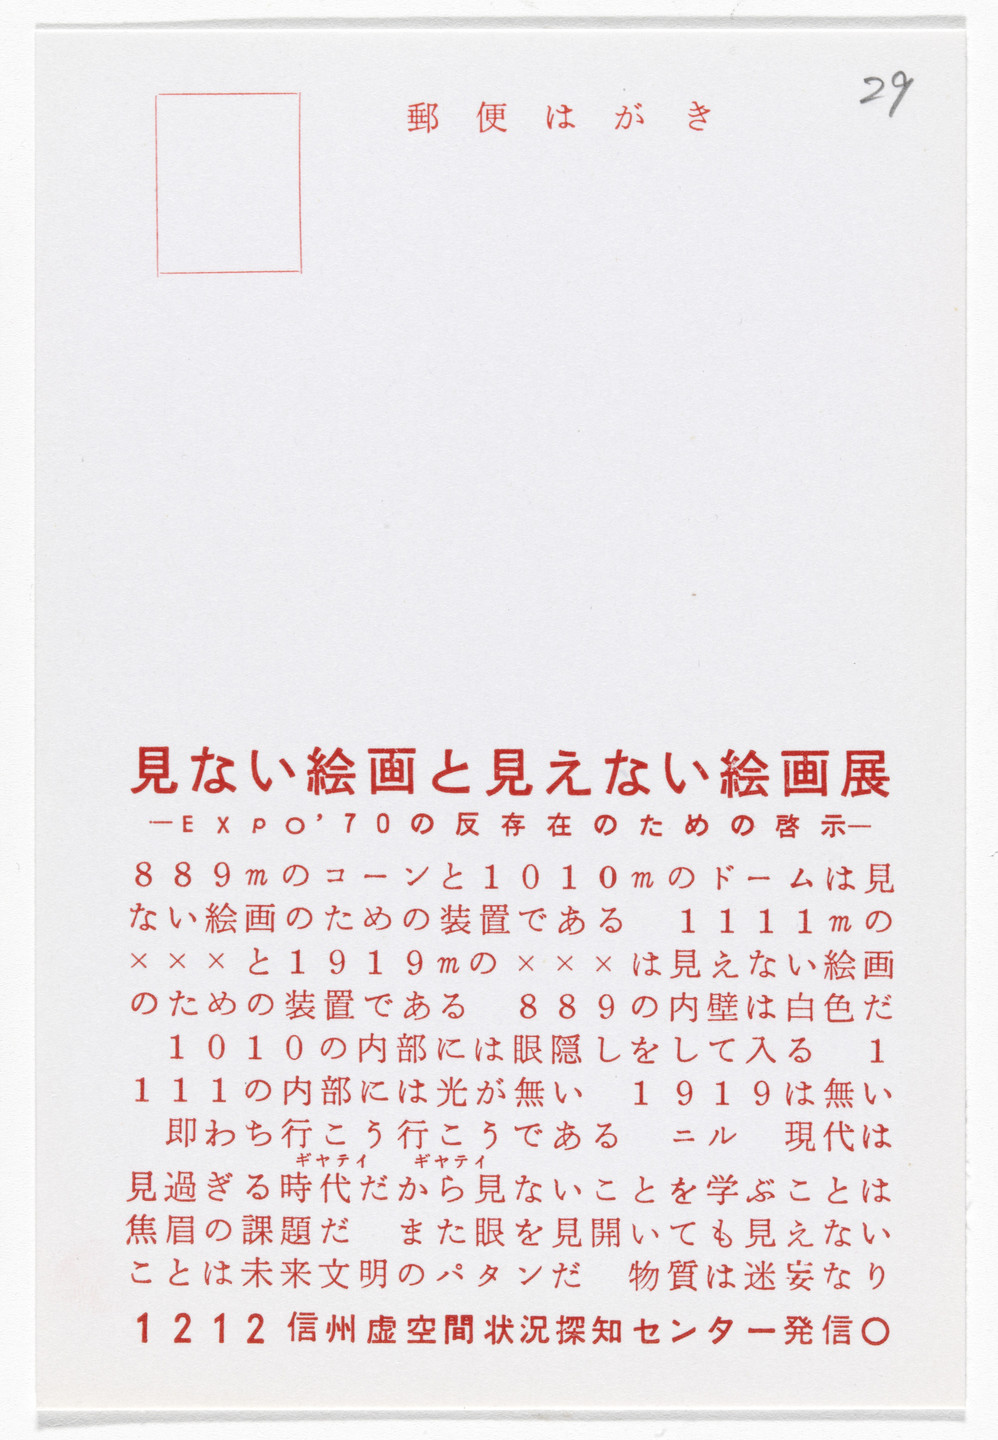 29
郵便はがき
見ない絵画と見えない絵画展
—EXPO'70の反存在のための啓示—
889mのコーンと1010mのドームは見
ない絵画のための装置である　1111mの
×××と1919mの×××は見えない絵画
のための装置である　889の内壁は白色だ
1010の内部には眼隠しをして入る　1
111の内部には光が無い　1919は無い
即わち行こう行こうである　ニル　現代は
ギヤテイ　ギヤテイ
見過ぎる時代だから見ないことを学ぶことは
焦眉の課題だ　また眼を見開いても見えない
ことは未来文明のパタンだ　物質は迷妄なり
1212信州虚空間状況探知センター発信○